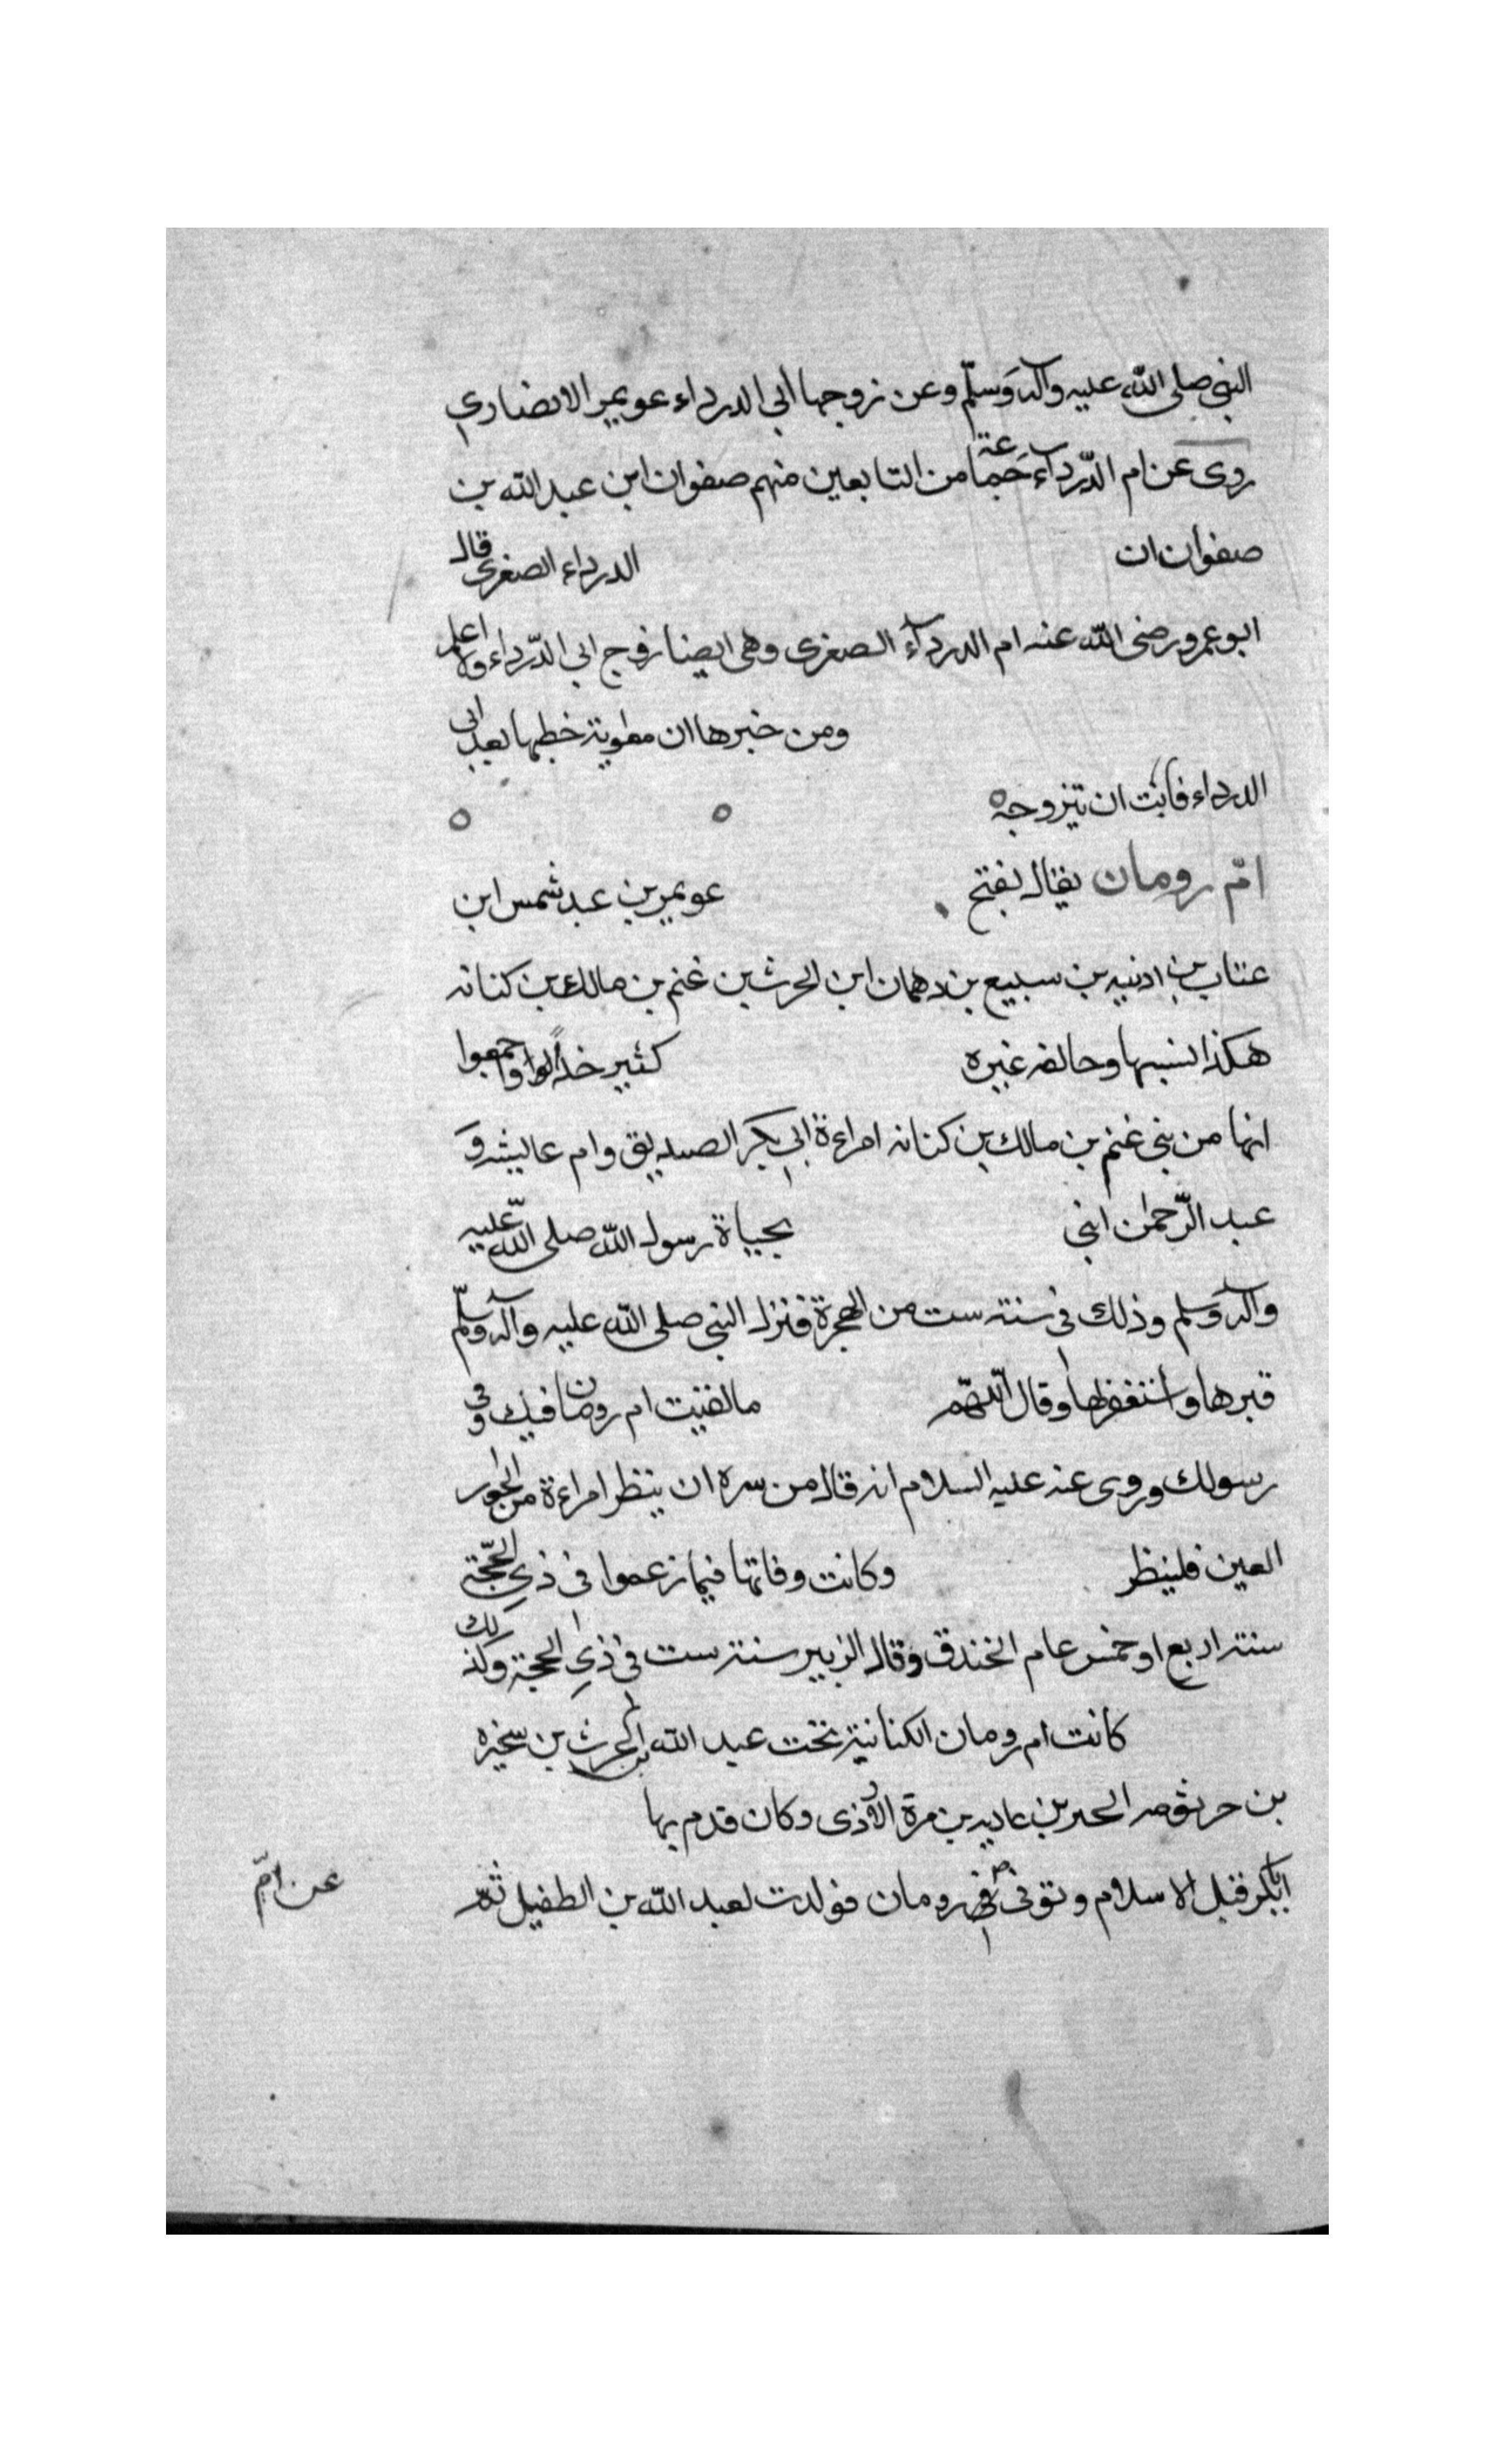 النبي صلى الله عليه وآله وسلّم وعن زوجها أبي الدرداء عويمر الانصاري
روى عن ام الدّرداء جماعة من التابعين منهم صفوان ابن عبد الله بن
صفوان ان الدرداء الصغرى قال
ابو عمرو رضى الله عنه ام الدرداء الصغرى وهى ايضا زوج ابي الدّرداء والله اعلم
ومن خبرها ان معوية خطبها بعد ابى
الدرداء فابت ان تتزوجه
امّ رومان يقال بفتح عويمر بن عبد شمس ابن
عتاب بن اذنيه بن سبيع بن دهمان ابن الحرث بن غنم بن مالك بن كنانه
هكذا نسبها وخالفه غيره كثير واجمعوا
انها من بني غنم بن مالك بن كنانه امراءة ابي بكر الصديق وام عايشه و
عبد الرّحمن ابني بحياة رسول الله صلى الله عليه
وآله وسلم وذلك في سنته ست من الهجرة فنزل النبي صلى الله عليه وآله وسلّم
قبرها واستغفر لها وقال اللّهمّ مالقيت ام رومان فيك وفي
رسولك وروى عنه عليه السلام انه قال من سره ان ينظر امراءة من الحور
العين فلينظر وكانت وفاتها فيما زعموا في ذي الحجّة
سنته اربع او خمس عام الخندق وقال الزبير سنته ست في ذي الحجة وكذلك
كانت ام رومان الكنانية تحت عبد الله بن الحرث بن سخبره
بن عاديه بن مرة الأزدى وكان قدم بها
ابابكر قبل الاسلام وتوفي عن ام رومان فولدت لعبد الله بن الطفيل ثم
عن امّ